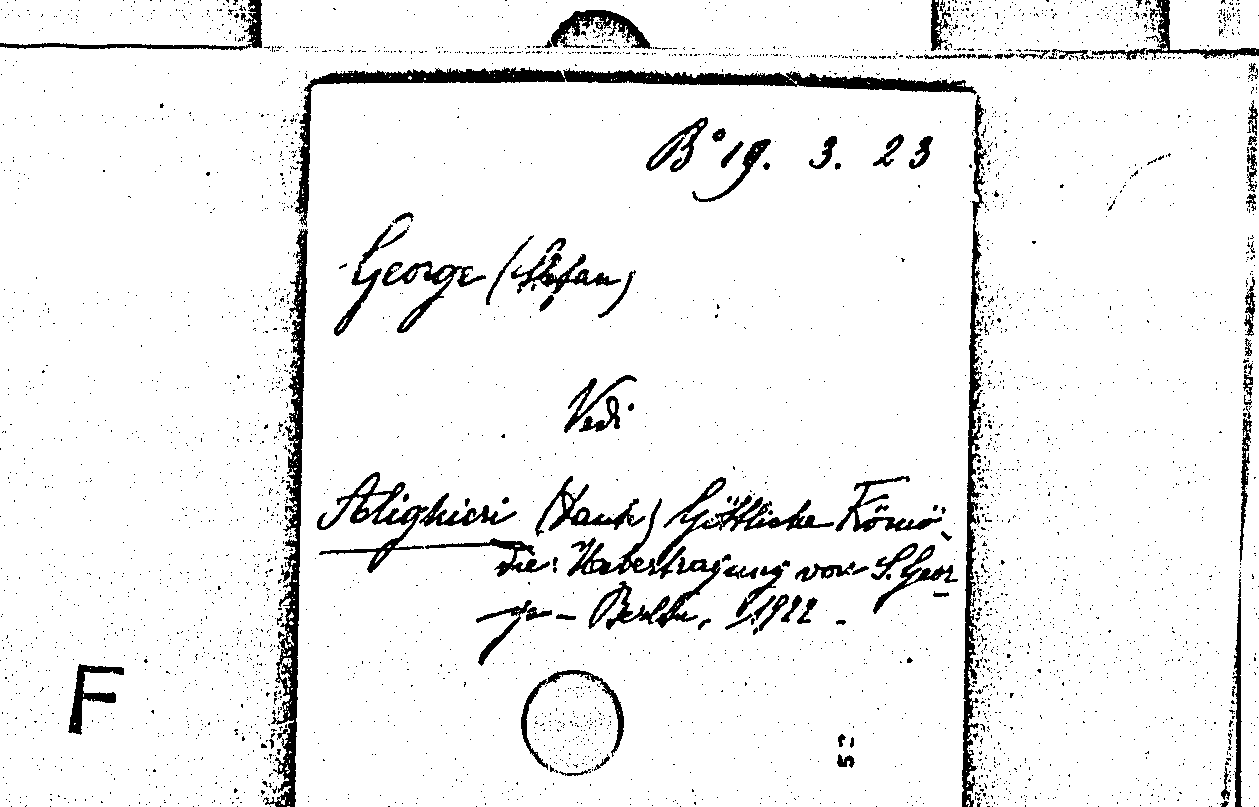 B° 19. 3. 23
George (Stefan)
Vedi
Alighieri (Dante) Göttliche Kömö-
die: Uebertragung von S. Geor
ge - Berlin, 1922 -
F